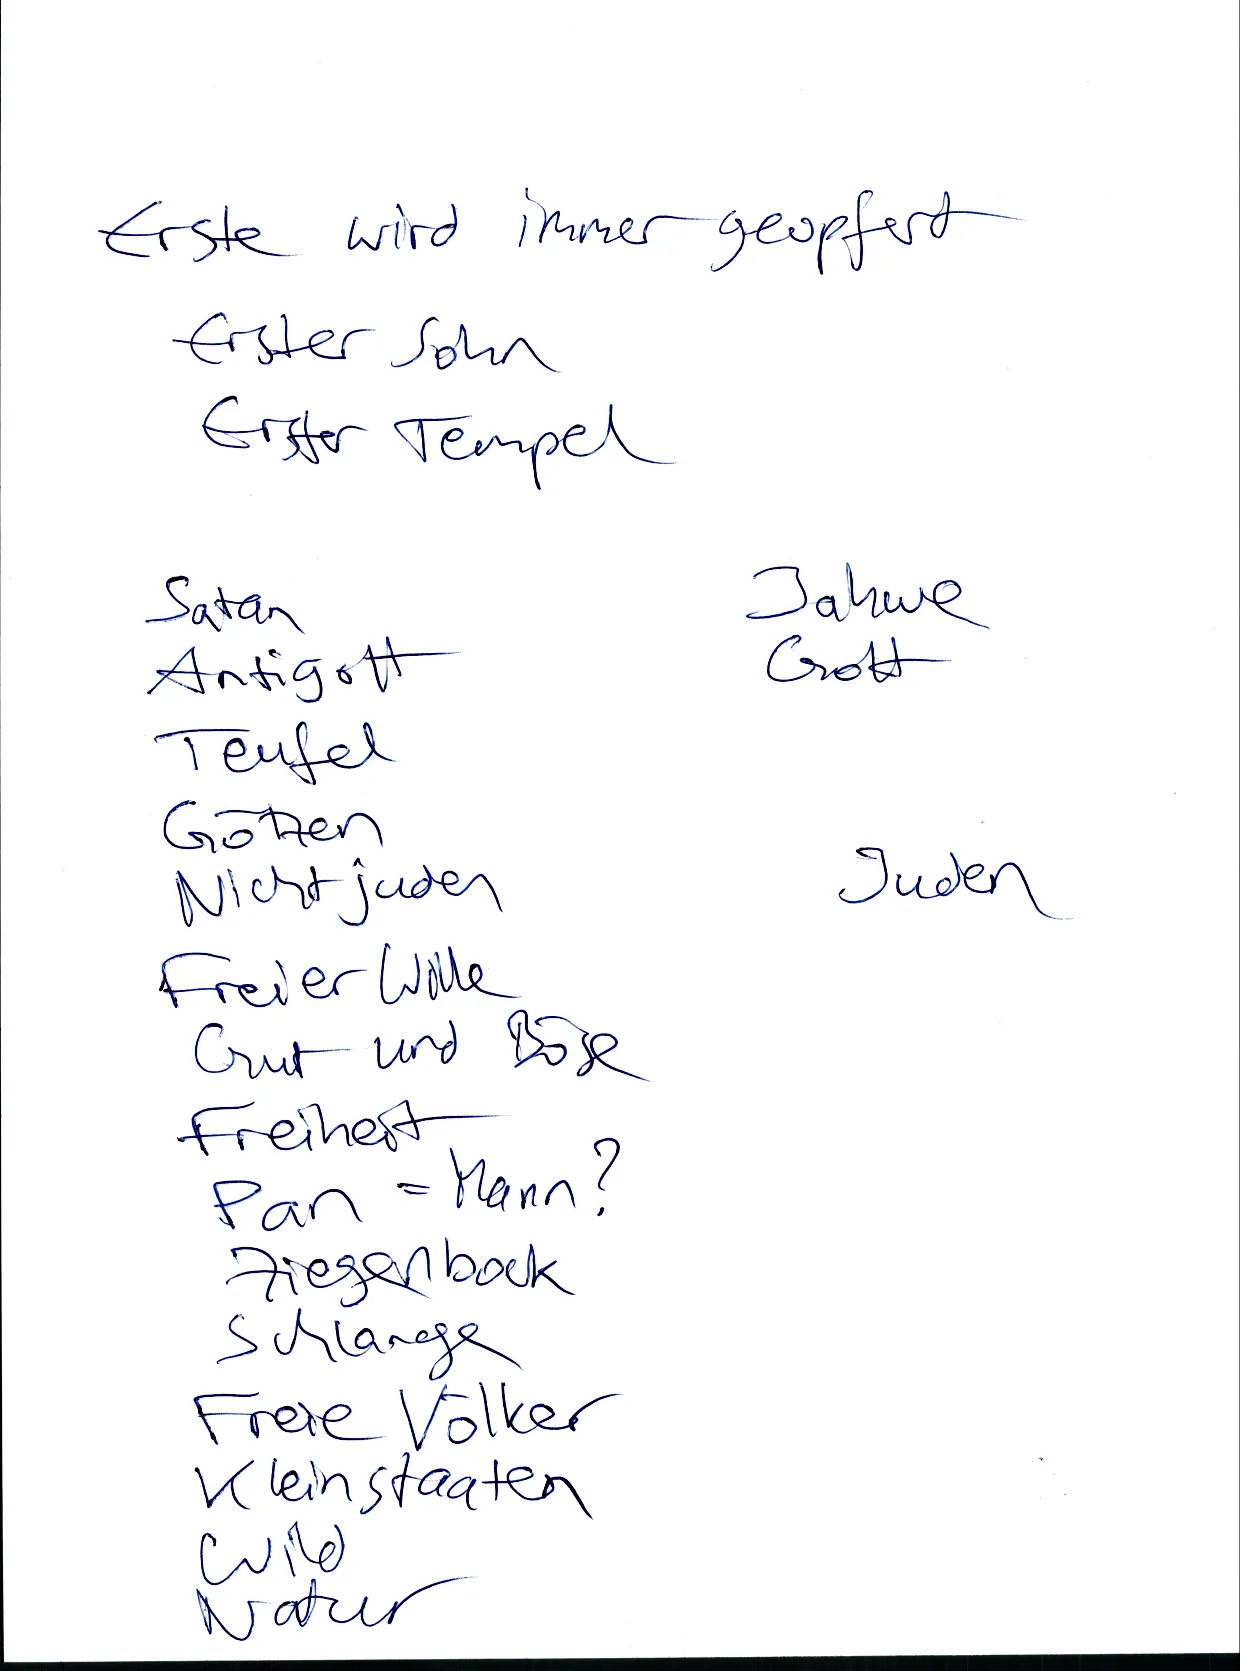 Erste wird immer geopfert
Erster Sohn
Erster Tempel
Satan Jahwe
Antigott Gott
Teufel
Götzen
Nichtjuden Juden
Freier Wille
Gut und Böse
Freiheit
Pan = Mann?
Ziegenbock
Schlange
Freie Völker
Kleinstaaten
Wild
Natur